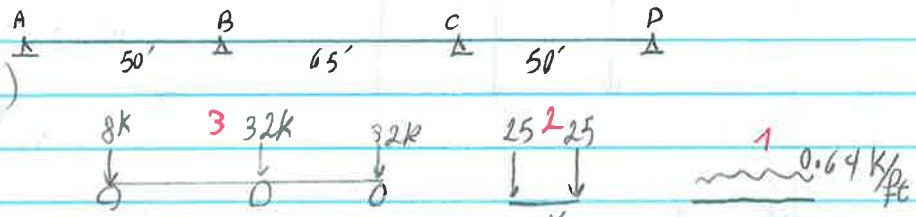 A B C D
50′ 65′ 50′
)
8K 3 32K 32K 25 2 25 1 0.64 K/ft